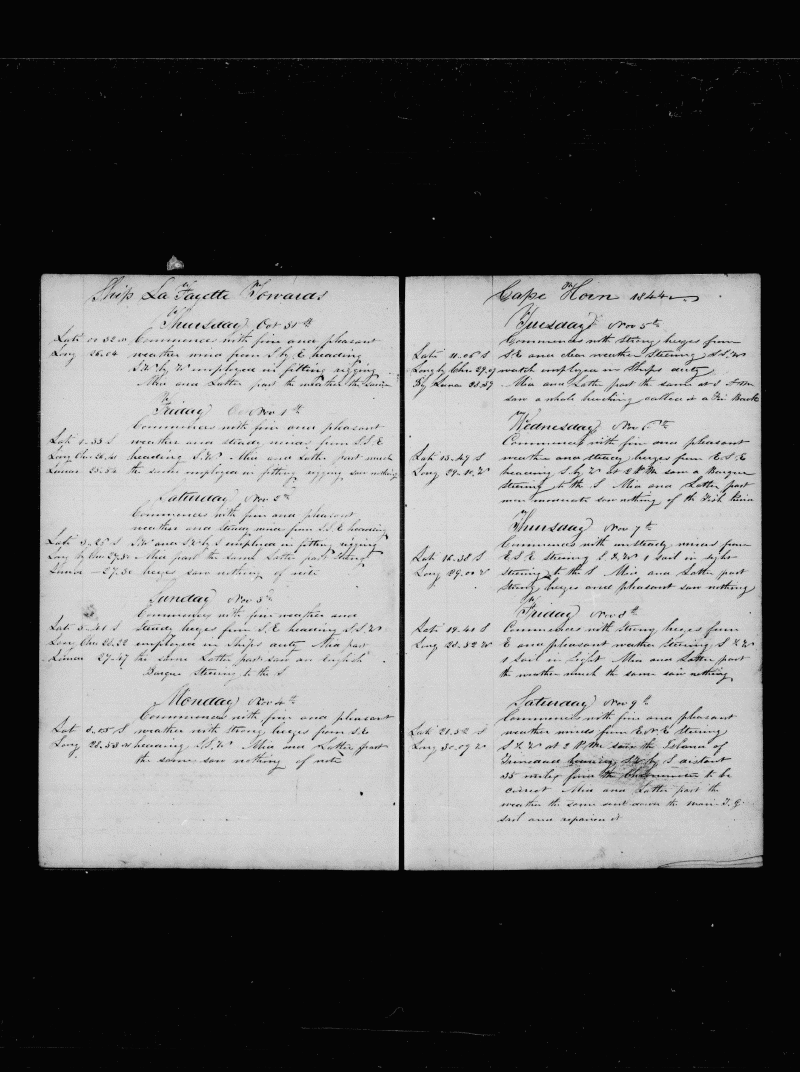 Ship La Fayette Towards
Thursday Oct 31th
Lati 01.32.0 Commences with fine and pleasant
Long 26.04 weather wind from S by E heading
S W by W employed in fitting rigging
Mid and Latter part the weather the same
Friday Nov 1th
Commences with fine and pleasant
Lati 1.33 S weather and steady winds from S S E
Long Chro 26.41 heading S.W Mid and Latter part much
Lunar 25.54 the same employed in fitting rigging saw nothing
Saturday Nov 2th
Commences with fine and pleasant
weather and steady wind from S.S.E heading
Lati 3.25 S S W and S W by S employed in fitting rigging
Long by Chro 27.30 Mid part the same Latter part strong
Lunar - 27.30 breezes saw nothing of note
Sunday Nov 3th
Commences with fine weather and
Lati 5.41 S steady brezes from S.E heading S.S.W
Long Chro 28.22 employed in Ships duty Mid part
Lunar 27.47 the same Latter part saw an English
Barque Stering to the S
Monday Nov 4th
Commences with fine and pleasant
Lati 8.08 S weather with strong brezes from S.E
Long 28.53 W heading S.S.W Mid and Latter part
the same saw nothing of note
Cape Horn 1844
Tuesday Nov 5th
Commences with Strong brezes from
Lati 11.06 S S.E and clear weather Steering S.S.W
Long by Chro 29.09 watch employed in Ships duty
By Lunar 28.57 Mid and Latter part the same at
saw a whale
Wednesday Nov 6th
Commences with fine and pleasant
Lati 13.47 S weather and steady brezes from E.S.E
Long 29.11 W heading S. by W at 2 P.M saw a Barque
steering to the S Mid and Latter part
more moderate saw nothing of the Fish kind
Thursday Nov 7th
Commences with unsteady winds from
Lati 16.38 S E.S.E stering S.S.W 1 sail in sight
Long 29.00 W stering to the S Mid and Latter part
strong brezes and pleasant saw nothing
Friday Nov 8th
Lati 19.41 S Commences with Strong brezes from
Long 28.52 W E and pleasant weather stering S.S.W
1 sail in sight Mid and Latter part
the weather much the same saw nothing
Saturday Nov 9th
Commences with fine and pleasant
Lati 21.52 S weather winds from E.N.E Stering
Long 30.09 W S.S.W at 2 P.M saw the Island of
Trinidad bearing S W by S distant
35 miles from the Chronometer to be
correct Mid and Latter part the
weather the same sent down the main T.G
sail and repaired it